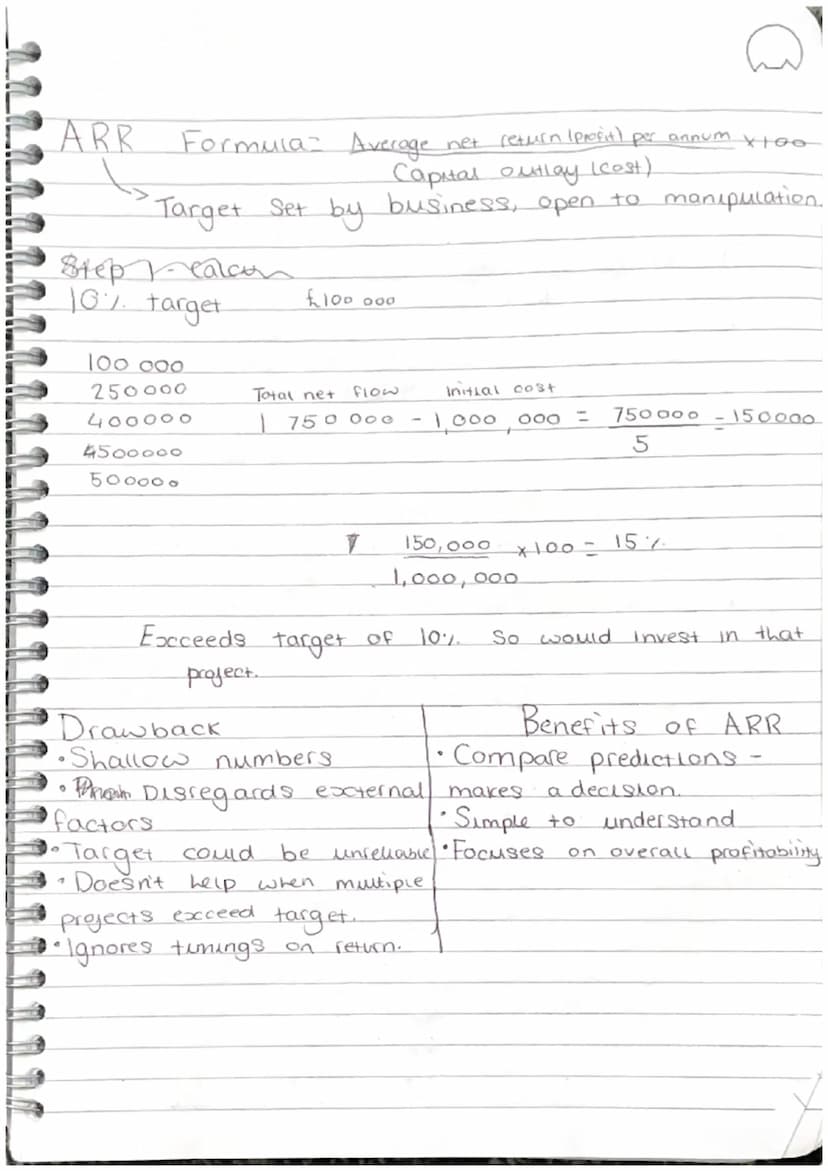 ARR Formula = Average net return (profit) per annum x100
Capital outlay (cost)
Target set by business, open to manipulation.
Step 1 -
10% target £100 000
100 000
250000 Total net flow initial cost
400000 1 750 000 - 1,000,000 = 750000 = 150000
4500000 5
500000
150,000 x100 = 15%
1,000,000
Exceeds target of 10% So would invest in that
project.
Drawback
• Shallow numbers
• Disregards external
factors
• Target could be unreliable
• Doesn't help when multiple
projects exceed target.
• Ignores timings on return.
Benefits of ARR
• Compare predictions -
makes a decision.
• Simple to understand
• Focuses on overall profitability